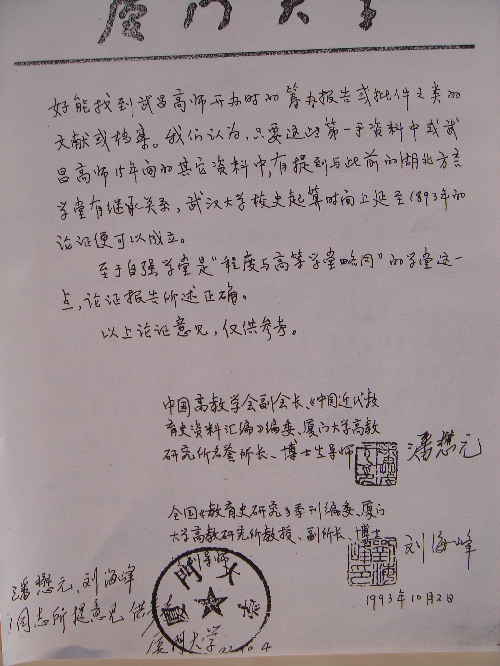 厦门大学
好能找到武昌高师开办时的筹办报告或批件之类的
文献或档案。我们认为,只要这些第一手资料中或武
昌高师15年间的其它资料中,有提到与此前的湖北方言
学堂有继承关系,武汉大学校史起算时间上延至1893年的
论证便可以成立。
至于自强学堂是“程度与高等学堂略同”的学堂这一
点,论证报告所述正确。
以上论证意见,仅供参考。
中国高教学会副会长、《中国近代教
育史资料汇编》编委、厦门大学高教
研究所名誉所长、博士生导师
潘懋元
全国《教育史研究》季刊编委、厦门
大学高教研究所教授、副所长、博士
生导师
刘海峰
1993年10月2日
潘懋元、刘海峰
同志所提意见 供参
厦门大学